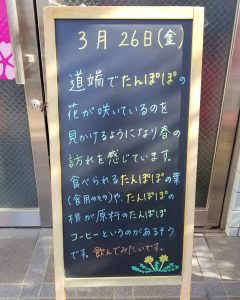 3月26日(金)
道端でたんぽぽの
花が咲いているのを
見かけるようになり春の
訪れを感じています。
食べられるたんぽぽの葉
(食用のもの)や、たんぽぽの
根が原料のたんぽぽ
コーヒーというのがあるそう
です。飲んでみたいです。